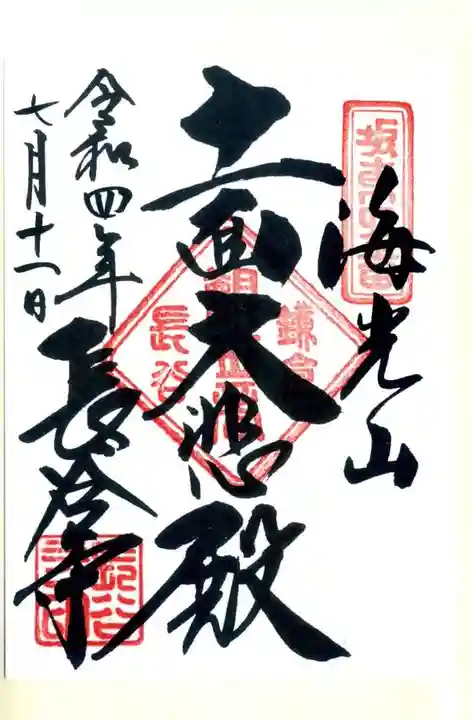 海光山
十一面大悲殿
長谷寺
令和四年
七月十一日
鎌倉
長谷